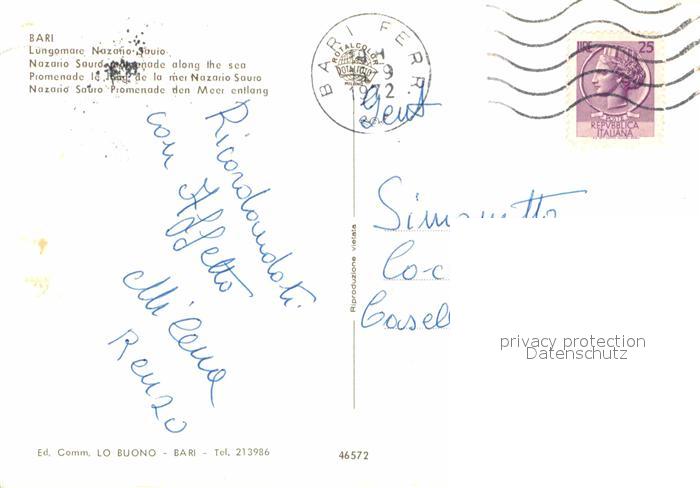 BARI
Lungomare Nazario Sauro
Nazario Sauro along the sea
Promenade le de la mer Nazario Sauro
Nazario Sauro Promenade den Meer entlang
BARI FERR
ROTALCOLOR
9
1972
LIRE 25
REPVBBLICA
ITALIANA
Gent
Ricordandoti
con affetto
Milena
Renzo
Riproduzione vietata
Casel
privacy protection
Datenschutz
Ed. Comm. LO BUONO - BARI - Tel. 213986
46572